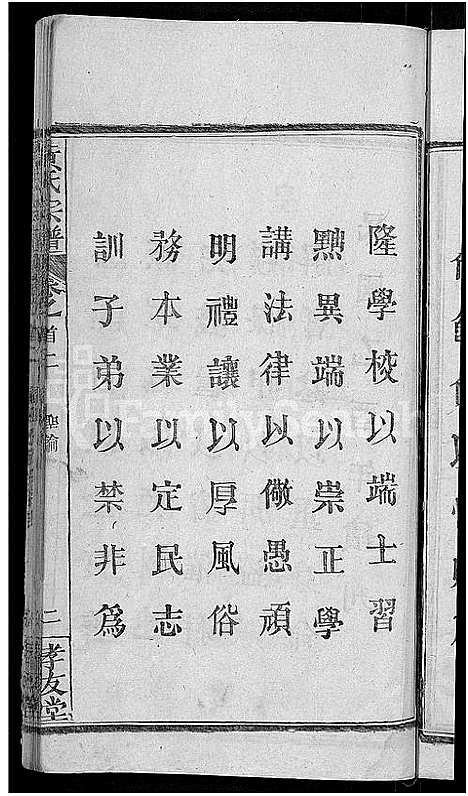 隆學校以端士習
黜異端以崇正學
講法律以儆愚頑
明禮讓以厚風俗
務本業以定民志
訓子弟以禁非爲
黃氏宗譜
卷之首二
聖諭
二
孝友堂
FamilySearch